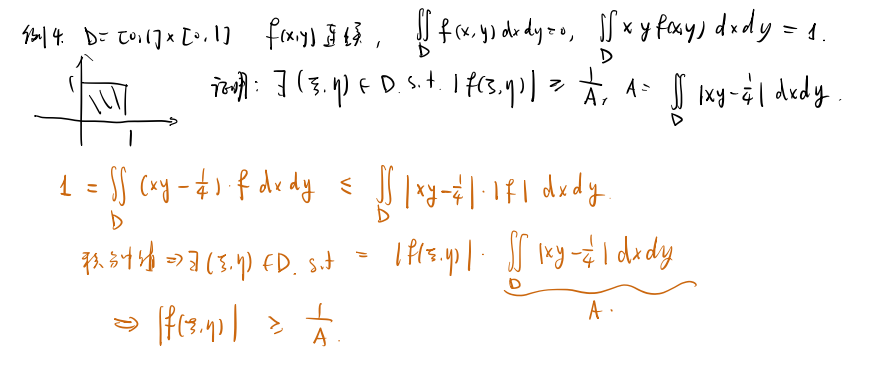 例4. D=[0,1]×[0,1] f(x,y)连续, ∬_D f(x,y)dxdy=0, ∬_D xyf(x,y)dxdy=1.
1
1
证明: ∃(ξ,η)∈D. s.t. |f(ξ,η)| ≥ 1/A, A= ∬_D |xy-1/4| dxdy.
1 = ∬_D (xy-1/4)·f dxdy ≤ ∬_D |xy-1/4|·|f| dxdy.
⇒∃(ξ,η)∈D. s.t = |f(ξ,η)|· ∬_D |xy-1/4| dxdy
A.
⇒ |f(ξ,η)| ≥ 1/A.